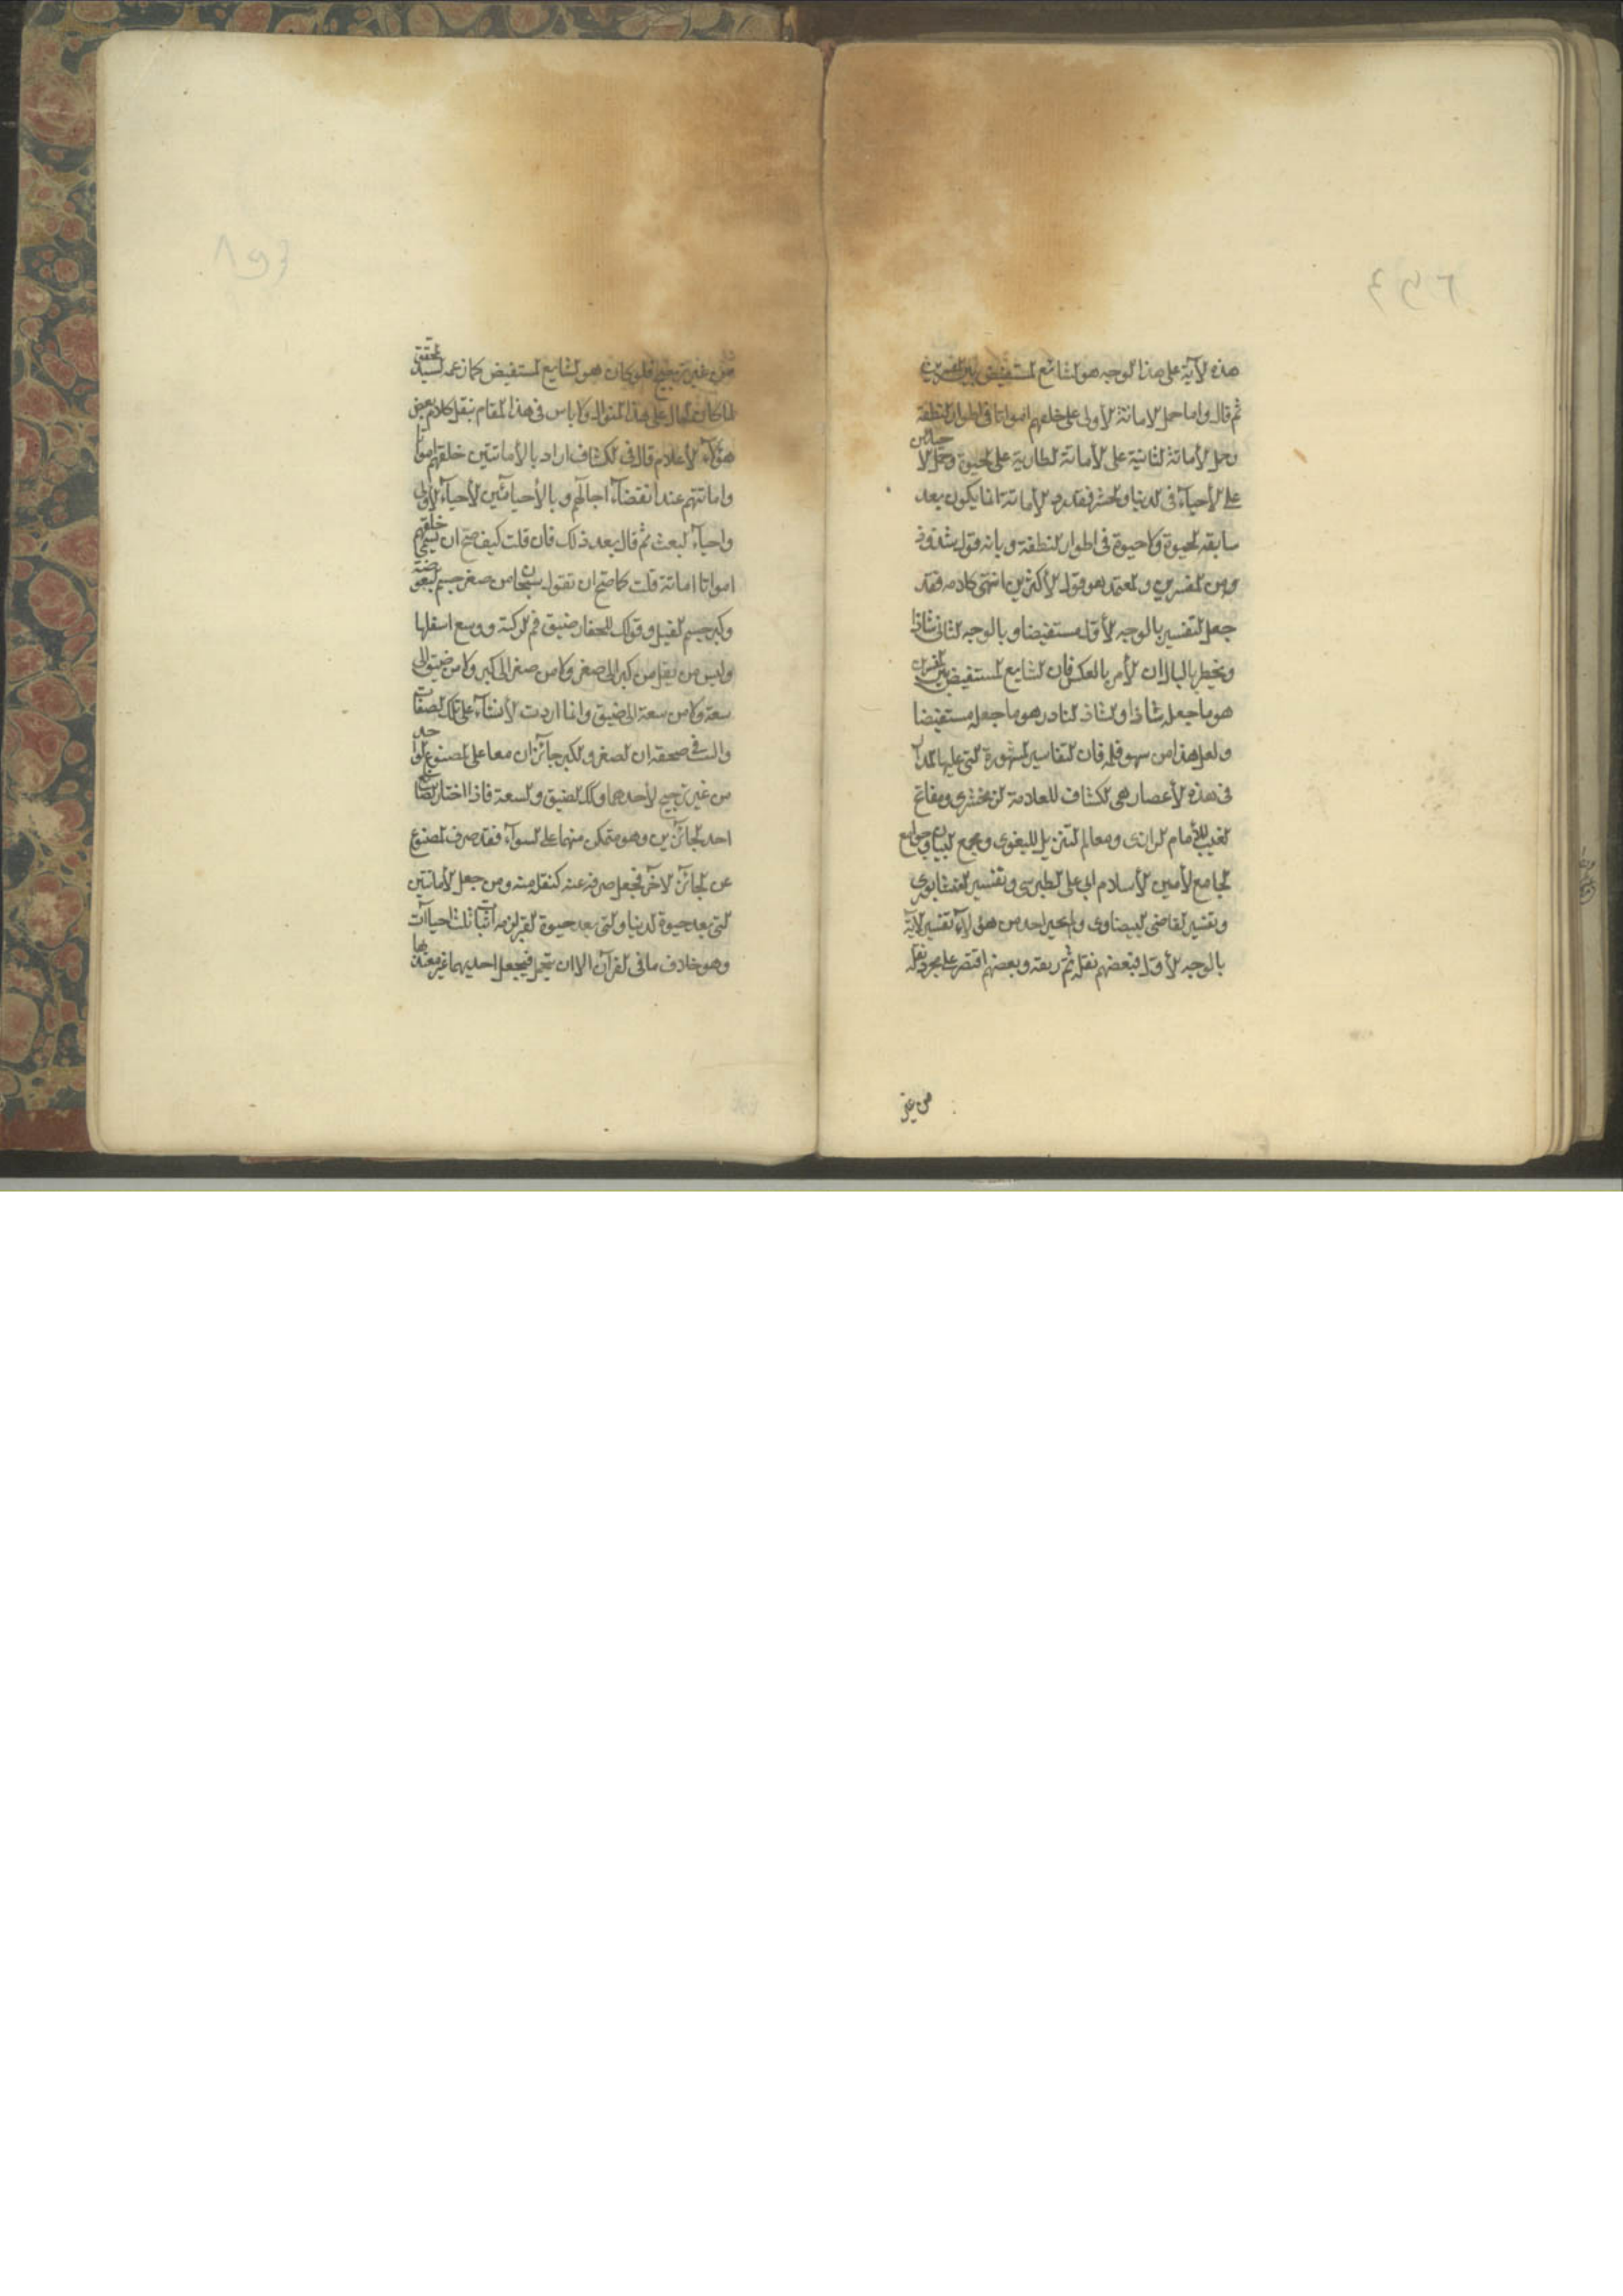 هذه الآية على هذا الوجه هو الشائع المستفيض بين المفسرين
ثم قال واما حمل الاماتة الأولى على خلقهم امواتا فى اطوار النطفة
وحمل الأماتة الثانية على الأماتة الطارية على الحيوة وحمل الاحيائين
على الأحياء فى الدنيا والحشر فقد رد الأماتة انما يكون بعد
سابقه الحيوة ولا حيوة فى اطوار النطفة وبانه قول شذوذ
من المفسرين والمعتمد هو قول الأكثرين انتهى كلامه فقد
جعل التفسير بالوجه الأول مستفيضا وبالوجه الثانى شاذا
ويخطر بالبال ان الأمر بالعكس فان الشايع المستفيض بين المفسرين
هو ما جعله شاذا والشاذ النادر هو ما جعله مستفيضا
ولعل هذا من سهو قلمه فان التفاسير المشهورة التى عليها المدار
فى هذه الأعصار هى الكشاف للعلامة الزمخشرى ومفاتح
الغيب للأمام الرازى ومعالم التنزيل للبغوى ومجمع البيان وجوامع
الجامع لأمين الأسلام ابى على الطبرسى وتفسير النيشابورى
وتفسير القاضى البيضاوى ولم يختر احد من هؤلاء تفسير الآية
بالوجه الأول فبعضهم نقله ثم زيفه وبعضهم اقتصر على مجرد نقله
من غير
من غير ترجيح فلو كان هو الشايع المستفيض كما زعمه السيد المحقق
لما كان الحال على هذا المنوال ولا باس فى هذا المقام بنقل كلام بعض
هؤلاء الأعلام قال فى الكشاف اراد بالأماتتين خلقهم امواتا
واماتتهم عند انقضاء اجالهم وبالأحيائين الأحياء الأولى
واحياء البعث ثم قال بعد ذلك فان قلت كيف صح ان يسمى خلقهم
امواتا اماتة قلت كما صح ان تقول سبحان من صغر جسم البعوضة
وكبر جسم الفيل وقولك للحفار ضيق فم الركية ووسع اسفلها
وليس من ينقل من كبر الى صغر ولا من صغر الى كبر ولا من ضيق الى
سعة ولا من سعة الى ضيق وانما اردت الأنشاء على تلك الصفات
والسبب فى صحته ان الصغر والكبر جائزان معا على المصنوع الواحد
من غير ترجيح لأحدهما وكك الضيق والسعة فاذا اختار الصانع
احد الجائزين وهو متمكن منهما على السواء فقد صرف المصنوع
عن الجائز الآخر فجعل صرفه عنه كنقله منه ومن جعل الأماتتين
التى بعد حيوة الدنيا والتى بعد حيوة القبر لزمه اثبات ثلث احياآت
وهو خلاف ما فى القرآن الا ان يتمحل فيجعل احديهما غير معتد بها